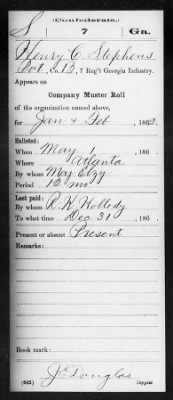 S
(Confederate.)
7
Ga.
Henry C. Stephens
Pvt. Co. B, 7 Reg't Georgia Infantry.
Appears on
Company Muster Roll
of the organization named above,
for Jan & Feb, 1862.
Enlisted:
When May 1, 186 .
Where Atlanta
By whom Maj Elzy
Period 12 mo
Last paid:
By whom R. K. Holliday
To what time Dec 31, 186 .
Present or absent Present
Remarks:
Book mark:
J C Douglas
(642)
Copyist.